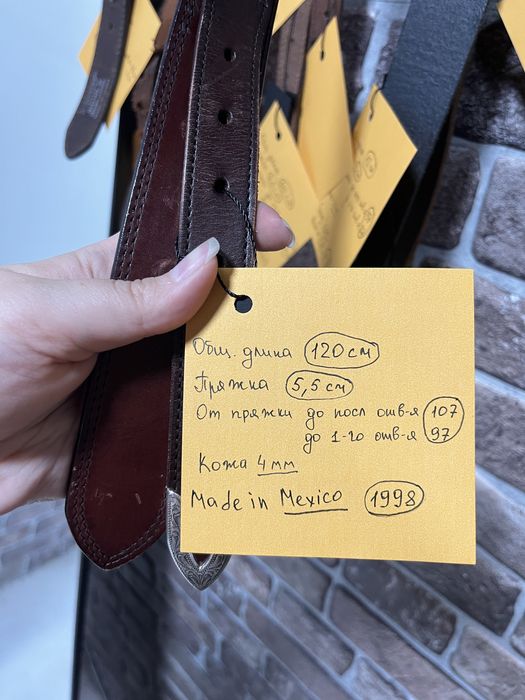 Общ. длина 120 см
Пряжка 5,5 см
От пряжки до посл отв-я 107
до 1-го отв-я 97
Кожа 4 мм
Made in Mexico 1998